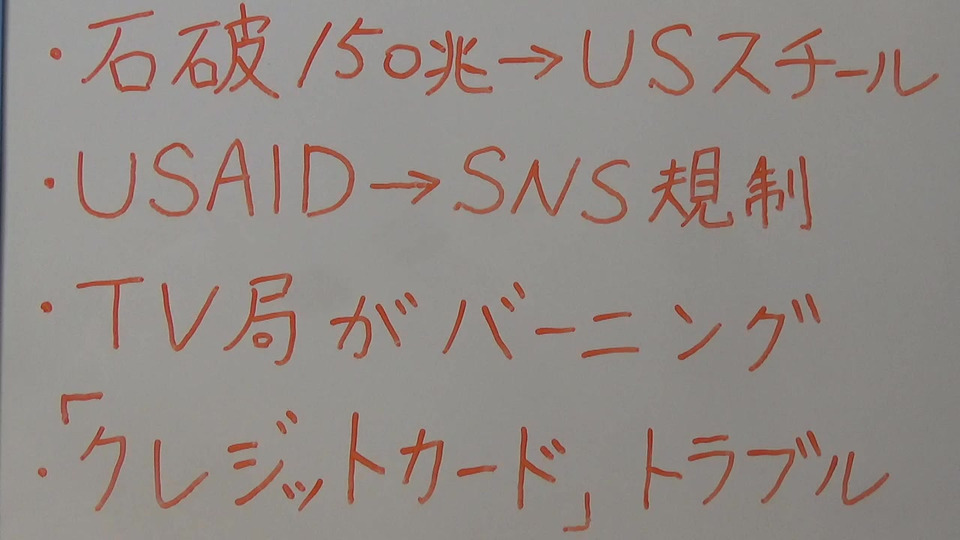 ・石破150兆→USスチール
・USAID→SNS規制
・TV局がバーニング
・「クレジットカード」トラブル